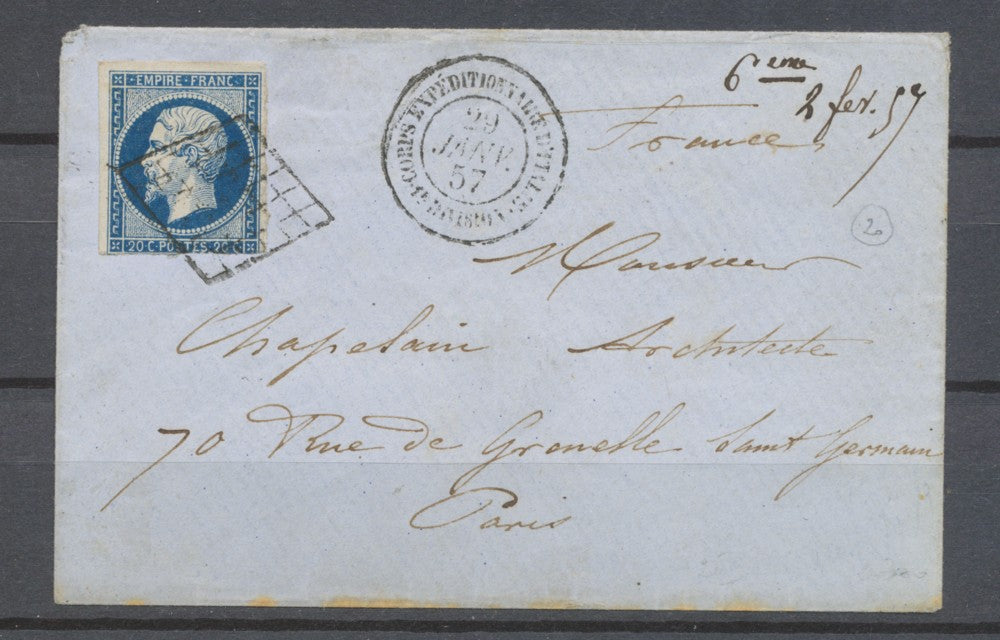 EMPIRE · FRANC
20 C · POSTES · 20 C
CORPS EXPÉDITIONNAIRE D'ITALIE
29
JANV.
57
1E DIVISION
6eme
2 fev. 57
France
2
Monsieur
Chapelain Architecte
70 Rue de Grenelle Saint Germain
Paris